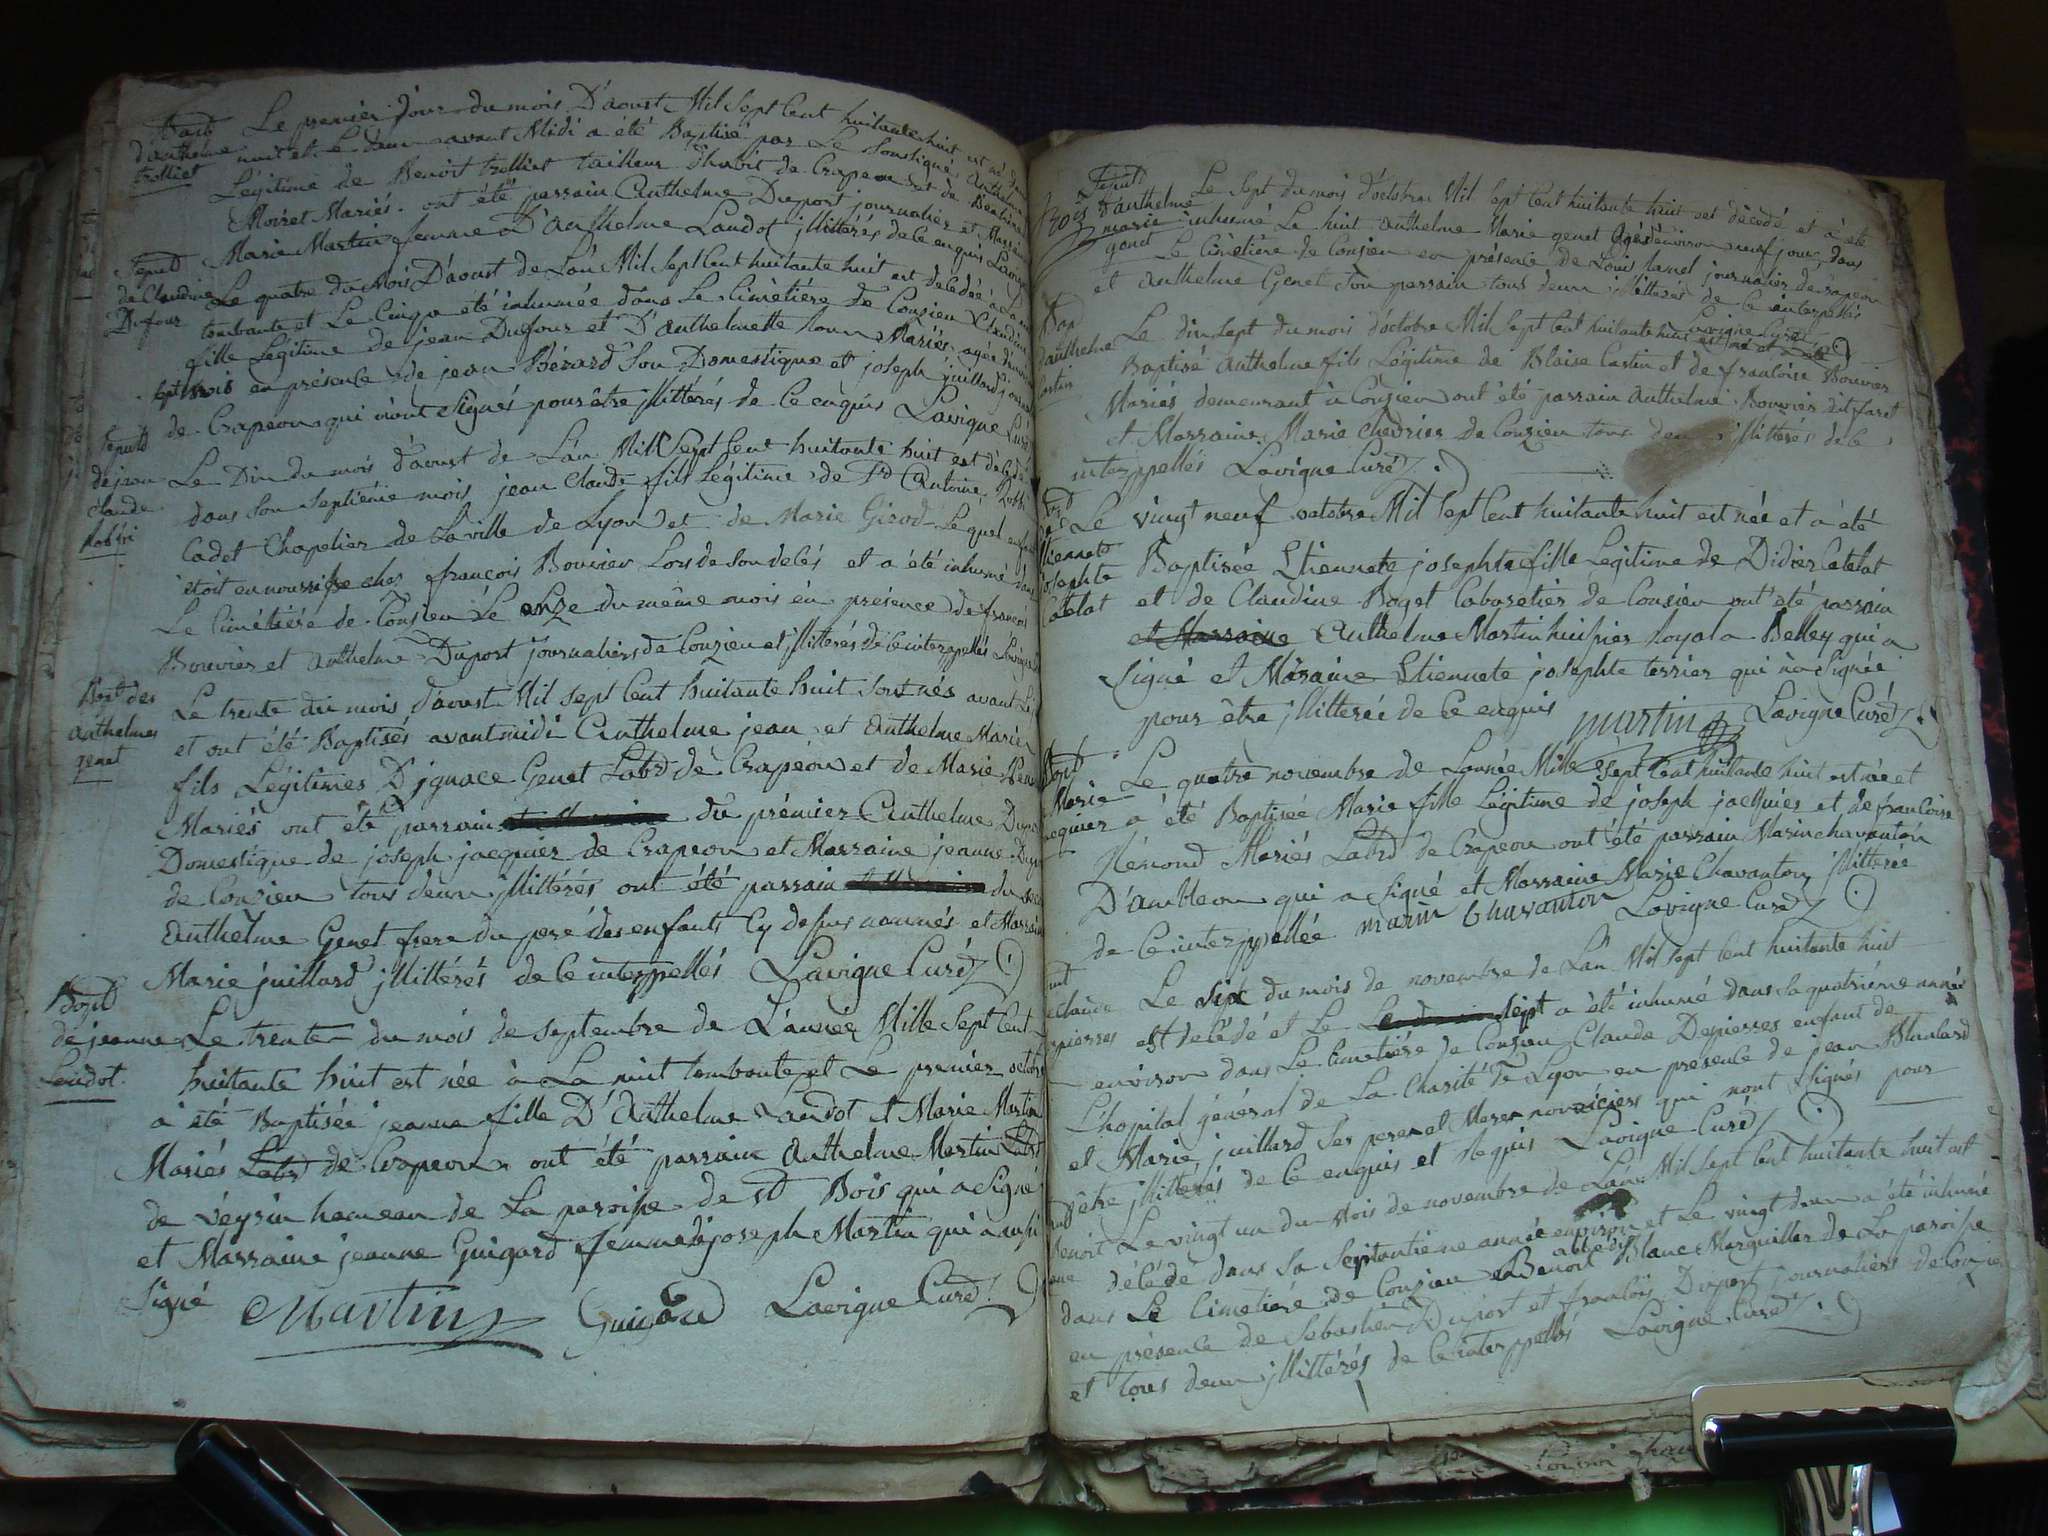 Bapt
d'anthelme
trolliet
Le premier jour du mois D'aoust Mil sept Cent huitante huit est né dans
nuit et le deux avant Midi a été Baptisé par Le Soussigné Anthelme
Légitime de Benoit trolliet tailleur d'habit de Crapeou et de
Moiret Mariés. ont été parrain Anthelme Duport journalier et Marraine
Marie Martin femme D'Anthelme Landot jllittérés de ce enquis Lavigne
Sepult
de Claudine
Dufour
Le quatre du Mois D'aoust de L'an Mil Sept Cent huitante huit est décédée à La nuit
tombante et Le Cinq a été inhumée dans Le Cimétière de Consieu Claudine
fille Légitime de jean Dufour et D'anthelmette Mariés agée d'environ
sept mois en présence de jean Bérard Son Domestique et joseph juillard
de Crapeou qui n'ont Signés pour être jllittérés de Ce enquis Lavigne Curé
Sepult
de jean
Claude
Le Dix du mois d'aoust de L'an Mil Sept Cent huitante huit est décédé
dans son Septième mois jean Claude fils Légitime de Sr Antoine
Cadet Chapelier de La ville de Lyon et de Marie Girod Le quel enfant
étoit en nourrisse chez françois Bouvier Lors de son décés et a été inhumé dans
Le Cimétière de Consieu Le onze du même mois en présence de françois
Bouvier et Anthelme Duport journaliers de Consieu et jllittérés de Ce interppellés Lavigne
Bapt des
Anthelmes
genet
Le trente du mois d'aoust Mil sept Cent huitante huit sont nés avant
et ont été Baptisés avant midi Anthelme jean et Anthelme Marie
fils Légitimes D'jgnace Genet Labr de Crapéou et de Marie
Mariés ont été parrain du prémier Anthelme
Domestique de joseph jacquier de Crapeou et Marraine jeanne
de Consieu tous deux jllittérés ont été parrain du
Anthelme Genet frere du pere des enfants Cy dessus nommés et Marraine
Marie juillard jllittérés de Ce interppellés Lavigne Curé
Bapt
de jeanne
Landot
Le trente du mois de septembre de L'année Mille Sept Cent
huitante huit est née à La nuit tombante et Le premier octobre
a été Baptisée jeanne fille D'Anthelme Landot et Marie Martin
Mariés Labr de Crapeou ont été parrain Anthelme Martin Labr
de véyrin hameau de La paroisse de St Bois qui a Signé
et Marraine jeanne Guigard femme de joseph Martin qui a aussi
Signé Martin Guigard Lavigne Curé
Sepult
d'anthelme
marie
genet
Le Sept du mois d'octobre Mil Sept Cent huitante huit est décédé et a été
inhumé Le huit Anthelme Marie genet agé d'environ neuf jours, dans
Le Cimétière de Consieu en présence de Louis journalier de Crapeou
et Anthelme Genet Son parrain tous deux jllittérés de Ce interpellés
Lavigne Curé
Bap
d'anthelme
Le dix sept du mois d'octobre Mil Sept Cent huitante huit est né et a été
Baptisé Anthelme fils Légitime de Blaise Castin et de françoise Bouvier
Mariés demeurant à Consieu ont été parrain Anthelme Bouvier dit
et Marraine Marie chevrier de Consieu tous deux jllittérés de Ce
interppellés Lavigne Curé
Etiennete
josephte
Catelat
Le vingt neuf octobre Mil Sept Cent huitante huit est née et a été
Baptisée Etiennete josephte fille Légitime de Didier Catelat
et de Claudine Boget Cabaretier de Consieu ont été parrain
et Marraine Anthelme Martin huissier Royal a Belley qui a
Signé et Maraine Etiennete josephte terrier qui n'a Signée
pour être jllitérée de Ce enquis martin Lavigne Curé
Bapt
Marie
jequier
Le quatre novembre de L'année Mille Sept Cent huitante huit est née et
a été Baptisée Marie fille Légitime de joseph jacquier et de francoise
Rémond Mariés Labr de Crapeou ont été parrain Marin chavanton
D'ambleon qui a Signé et Marraine Marie Chavanton jllitterée
de Ce interppellée marin Chavanton Lavigne Curé
Claude
Depierres
Le Six du mois de novembre de L'an Mil Sept Cent huitante huit
est decédé et Le sept a été inhumé dans Sa quatrième année
environ dans Le Cimetière de Consieu Claude Depierres enfant de
L'hopital général de La Charité de Lyon en présence de jean Blanlard
et Marie juillard Ses peres et Meres nourriciers qui nont Signés pour
être jllitérés de Ce enquis et Requis Lavigne Curé
Benoit
Le vingt un du Mois de novembre de L'an Mil Sept Cent huitante huit est
décédé dans Sa Septantième année environ et Le vingt deux a été inhumé
dans Le Cimetière de Consieu Benoit Blanc Marguiller de La paroisse
en présence de Sebastien Duport et françois Duport journaliers de Consieu
et tous deux jllittérés de Ce interppellés Lavigne Curé